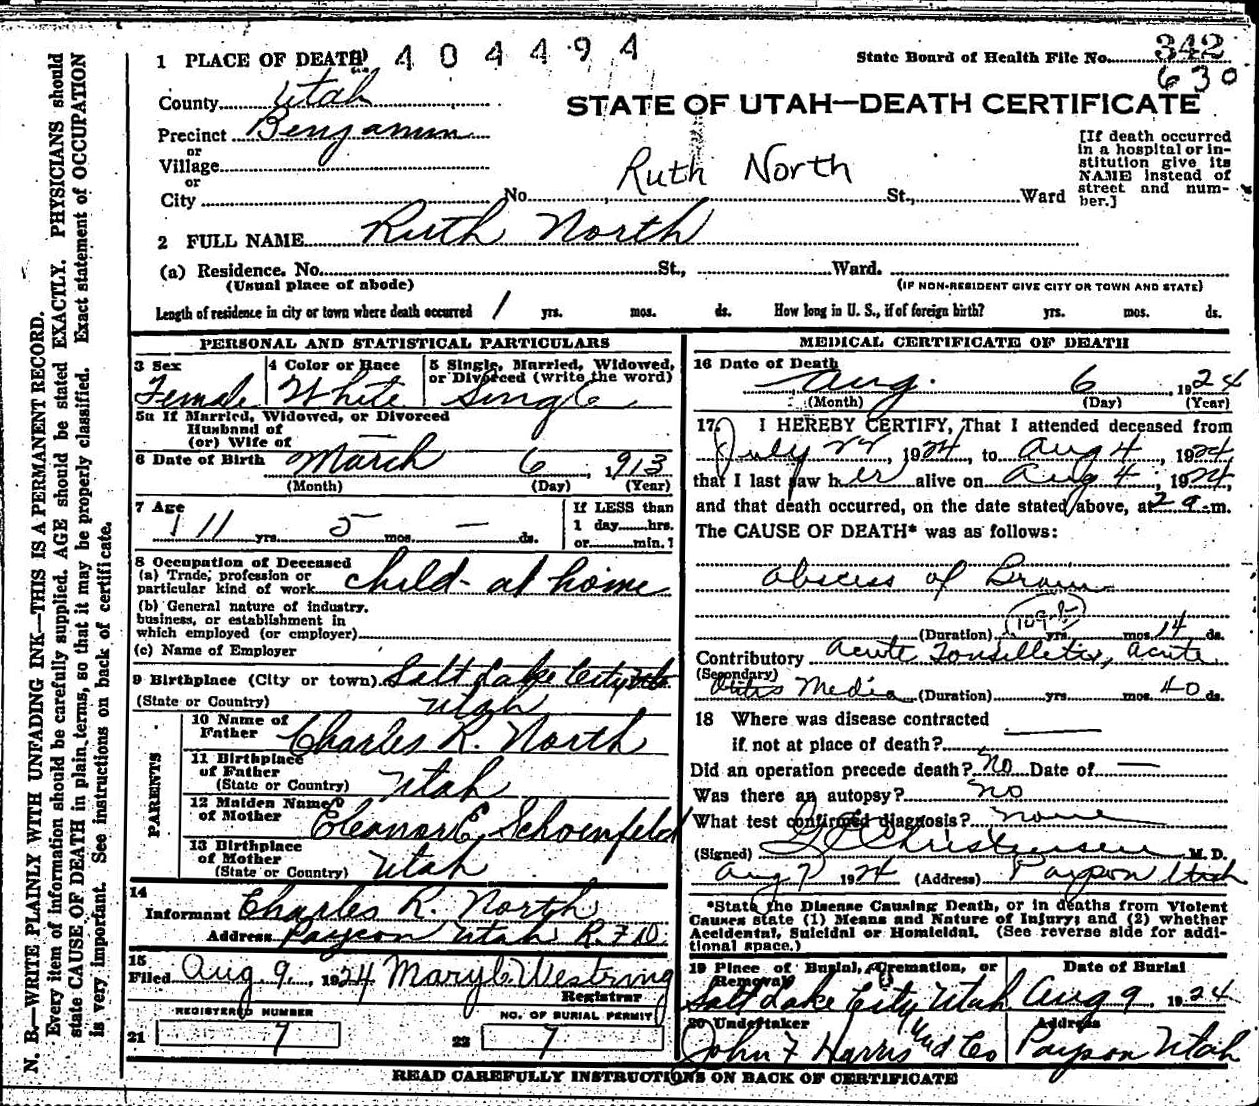 N. B.—WRITE PLAINLY WITH UNFADING INK—THIS IS A PERMANENT RECORD.
Every item of information should be carefully supplied. AGE should be stated EXACTLY. PHYSICIANS should
state CAUSE OF DEATH in plain terms, so that it may be properly classified. Exact statement of OCCUPATION
is very important. See instructions on back of certificate.
1 PLACE OF DEATH 404494 State Board of Health File No. 342
630
County Utah
STATE OF UTAH—DEATH CERTIFICATE
Precinct Benjamin
or
Village
or
City No. St., Ward
Ruth North
[If death occurred
in a hospital or in-
stitution give its
NAME instead of
street and num-
ber.]
2 FULL NAME Ruth North
(a) Residence. No. St., Ward.
(Usual place of abode) (IF NON-RESIDENT GIVE CITY OR TOWN AND STATE)
Length of residence in city or town where death occurred 1 yrs. mos. ds. How long in U. S., if of foreign birth? yrs. mos. ds.
PERSONAL AND STATISTICAL PARTICULARS
3 Sex 4 Color or Race 5 Single, Married, Widowed,
or Divorced (write the word)
Female White Single
5a If Married, Widowed, or Divorced
Husband of
(or) Wife of —
6 Date of Birth March 6, 1913
(Month) (Day) (Year)
7 Age If LESS than
11 yrs. 5 mos. — ds. 1 day hrs.
or min.?
8 Occupation of Deceased
(a) Trade, profession or
particular kind of work child - at home
(b) General nature of industry,
business, or establishment in
which employed (or employer)
(c) Name of Employer
9 Birthplace (City or town) Salt Lake City
(State or Country) Utah
PARENTS
10 Name of
Father Charles R. North
11 Birthplace
of Father
(State or Country) Utah
12 Maiden Name
of Mother Eleanor E. Schoenfeld
13 Birthplace
of Mother
(State or Country) Utah
14
Informant Charles R. North
Address Payson Utah R.F.D.
15
Filed Aug. 9, 1924 Mary C. Westring
Registrar
REGISTERED NUMBER NO. OF BURIAL PERMIT
21 7 22 7
MEDICAL CERTIFICATE OF DEATH
16 Date of Death
Aug. 6 1924
(Month) (Day) (Year)
17. I HEREBY CERTIFY, That I attended deceased from
July 22, 1924, to Aug 4, 1924,
that I last saw her alive on Aug 4, 1924,
and that death occurred, on the date stated above, at 2 a.m.
The CAUSE OF DEATH* was as follows:
Abscess of Brain
(Duration) yrs. mos. 14 ds.
Contributory Acute Tonsilletis, acute
(Secondary)
Otitis Media (Duration) yrs. mos. 40 ds.
18 Where was disease contracted
if not at place of death? —
Did an operation precede death? No Date of —
Was there an autopsy? No
What test confirmed diagnosis? None
(Signed) Christensen M. D.
Aug 7 1924 (Address) Payson Utah
*State the Disease Causing Death, or in deaths from Violent
Causes state (1) Means and Nature of Injury; and (2) whether
Accidental, Suicidal or Homicidal. (See reverse side for addi-
tional space.)
19 Place of Burial, Cremation, or Date of Burial
Removal
Salt Lake City Utah Aug 9, 1924
20 Undertaker Address
John F Harris Und Co Payson Utah
READ CAREFULLY INSTRUCTIONS ON BACK OF CERTIFICATE